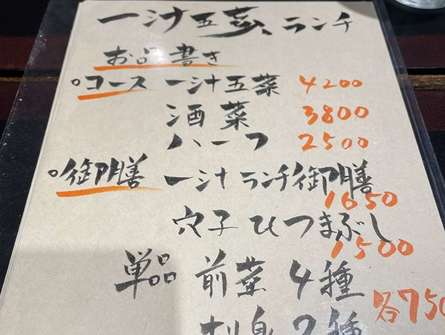 一汁五菜ランチ
お品書き
○コース 一汁五菜 4200
酒菜 3800
ハーフ 2500
○御膳 一汁ランチ御膳 1650
穴子ひつまぶし 1500
単品 前菜4種 各750